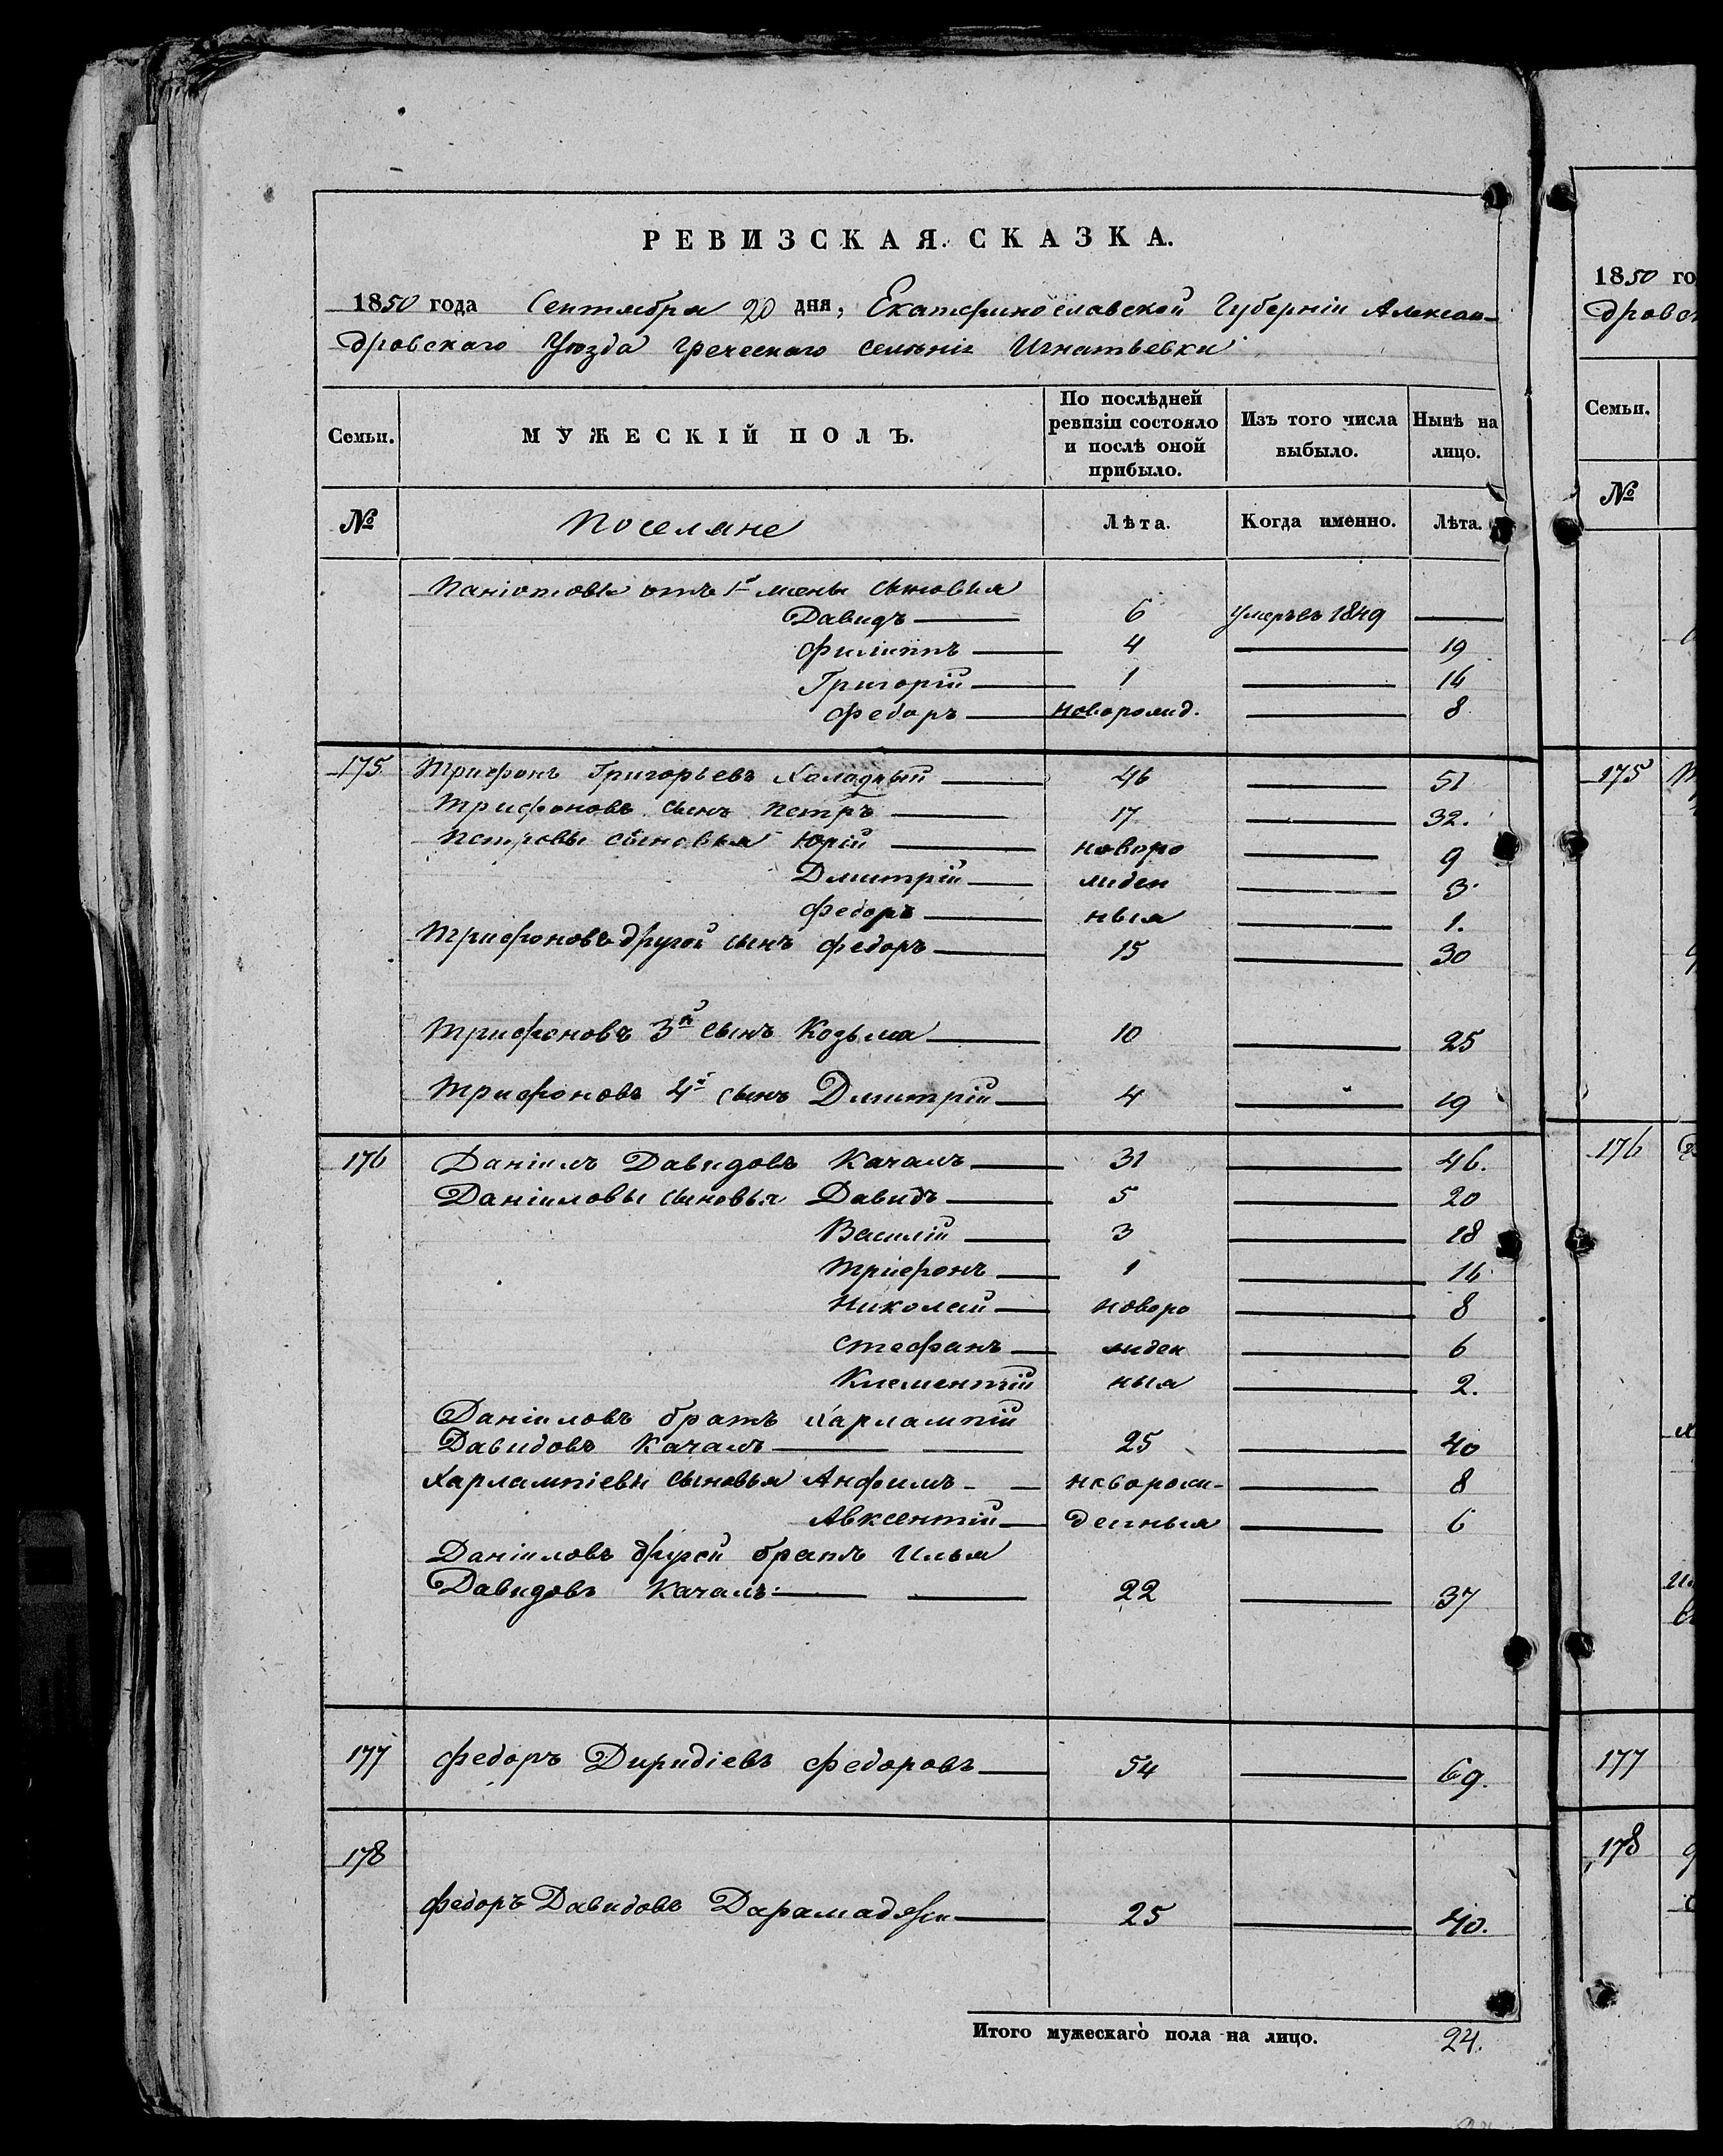 РЕВИЗСКАЯ СКАЗКА.
1850 года Сентября 20 дня, Екатеринославской Губерніи Алексан-
дровскаго Уезда Греческаго селенія Игнатьевки
Семьи. МУЖЕСКІЙ ПОЛЪ. По послѣдней ревизіи состояло и послѣ оной прибыло. Изъ того числа выбыло. Нынѣ на лицо.
№ Поселяне Лѣта. Когда именно. Лѣта.
Паніотовы отъ 1й жены сыновья
Давидъ 6 умеръ въ 1849
Филиппъ 4 19
Григорій 1 16
Федоръ новорожд. 8
175 Трифонъ Григорьевъ Халадный 46 51
Трифоновъ сынъ Петръ 17 32.
Петровы сыновья Юрій новоро 9
Дмитрій жден 3
Федоръ ныя 1.
Трифоновъ другой сынъ Федоръ 15 30
Трифоновъ 3й сынъ Козьма 10 25
Трифоновъ 4й сынъ Дмитрій 4 19
176 Даніилъ Давидовъ Качалъ 31 46.
Даніиловы сыновья Давидъ 5 20
Василій 3 18
Трифонъ 1 16
Николай новоро 8
Стефанъ жден 6
Климентій ныя 2.
Даніиловъ братъ Харлампій
Давидовъ Качалъ 25 40
Харлампіевы сыновья Анфимъ новорож- 8
Авксентій денныя 6
Даніиловъ другой братъ Илья
Давидовъ Качалъ 22 37
177 Федоръ Диридіевъ Федоровъ 54 69.
178
Федоръ Давидовъ 25 40.
Итого мужескаго пола на лицо. 24.
1850 го
дровск
Семьи.
№
175
176
177
178